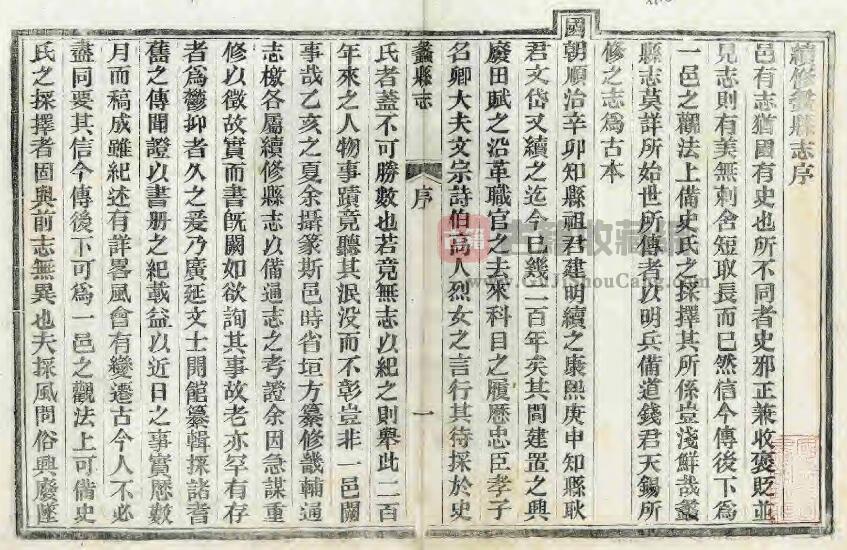 續修蠡縣志序
邑有志猶國有史也所不同者史邪正兼收褒貶並
見志則有美無刺舍短取長而已然信今傳後下為
一邑之觀法上備史氏之採擇其所係豈淺鮮哉蠡
縣志莫詳所始世所傳者以明兵備道錢君天錫所
修之志為古本
國朝順治辛卯知縣祖君建明續之康熙庚申知縣耿
君文岱又續之迄今已幾二百年矣其間建置之興
廢田賦之沿革職官之去來科目之履歷忠臣孝子
名卿大夫文宗詩伯高人烈女之言行其待採於史
蠡縣志
序
一
氏者蓋不可勝數也若竟無志以紀之則舉此二百
年來之人物事蹟竟聽其泯没而不彰豈非一邑闕
事哉乙亥之夏余攝篆斯邑時省垣方纂修畿輔通
志檄各屬續修縣志以備通志之考證余因急謀重
修以徵故實而書旣闕如欲詢其事故老亦罕有存
者為鬱抑者久之爰乃廣延文士開館纂輯採諸耆
舊之傳聞證以書册之紀載益以近日之事實歷數
月而稿成雖紀述有詳畧風會有變遷古今人不必
盡同要其信今傳後下可為一邑之觀法上可備史
氏之採擇者固與前志無異也夫採風問俗興廢墜
古籍
古籍收藏網
www.GuJiShouCang.com